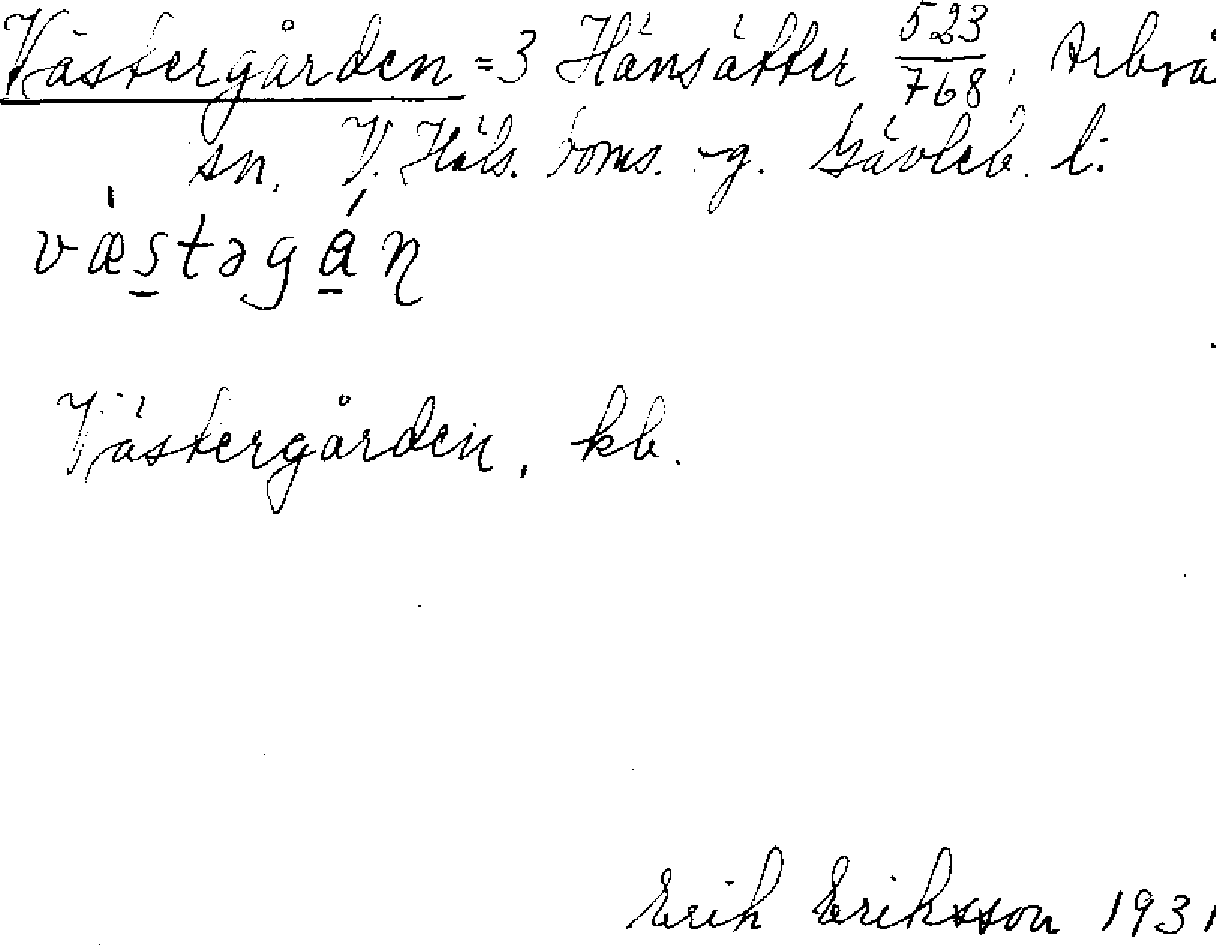 Västergården = 3 Hänsätter 523/768, Arbrå
sn. V. Häls. doms. -g. Gävleb. l.
væ̀stəgán
Västergården, kb.
Erik Eriksson 1931